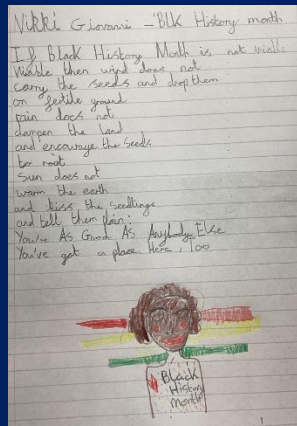 Nikki Giovanni - Blk History month
If Black History Month is not viable
Viable then wind does not
carry the seeds and drop them
on fertile ground
rain does not
dampen the land
and encourage the seeds
to root
Sun does not
warm the earth
and kiss the seedlings
and tell them plain:
You're As Good As Anybody Else
You've got a place Here, Too
Black
History
month